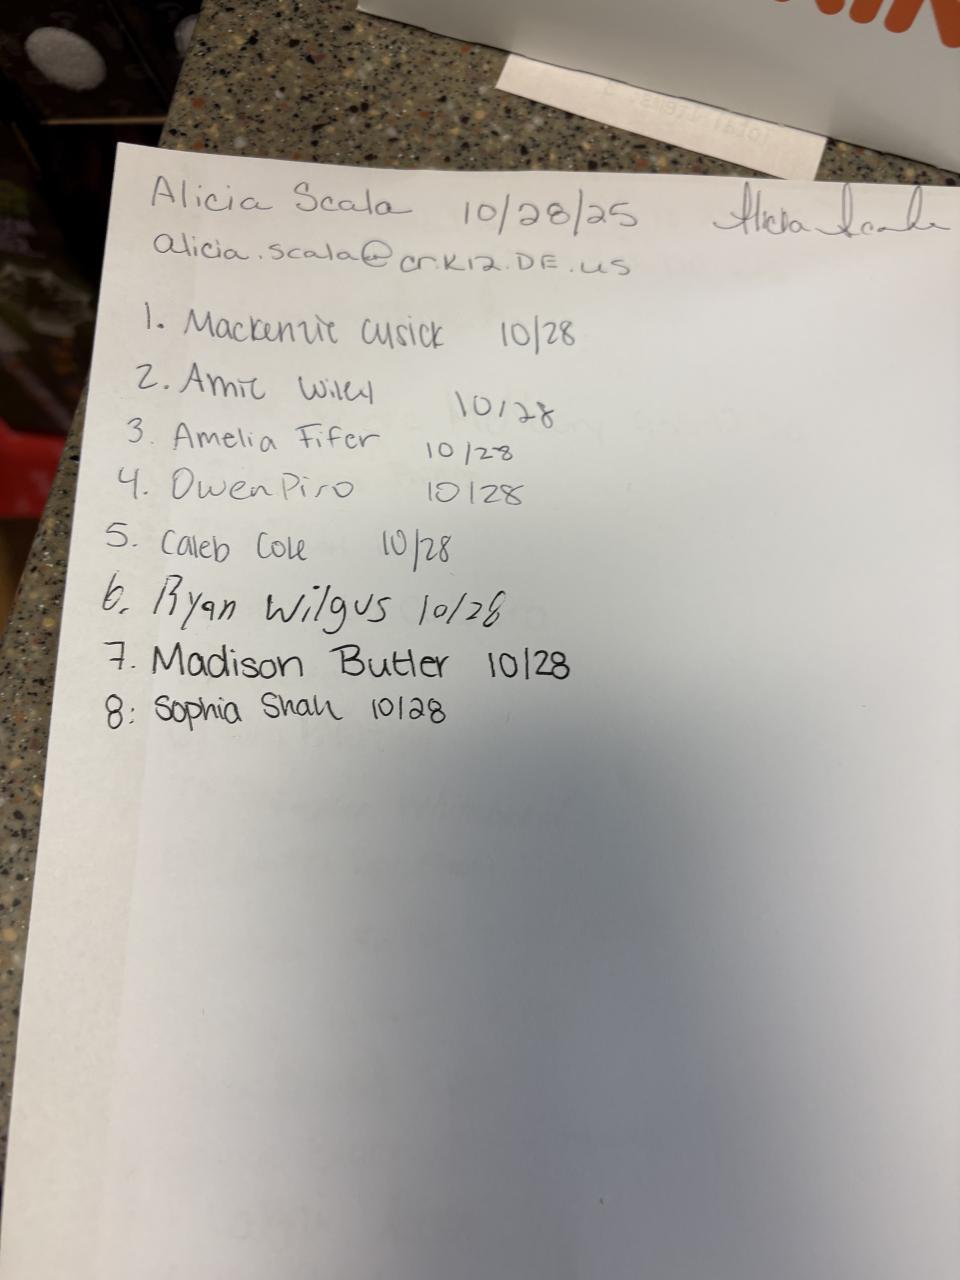 Alicia Scala 10/28/25 Alicia Scala
alicia.scala@cr.k12.DE.us
1. Mackenzie Cusick 10/28
2. Amie 10/28
3. Amelia Fifer 10/28
4. Owen Piro 10/28
5. Caleb Cole 10/28
6. Ryan Wilgus 10/28
7. Madison Butler 10/28
8: Sophia Shah 10/28